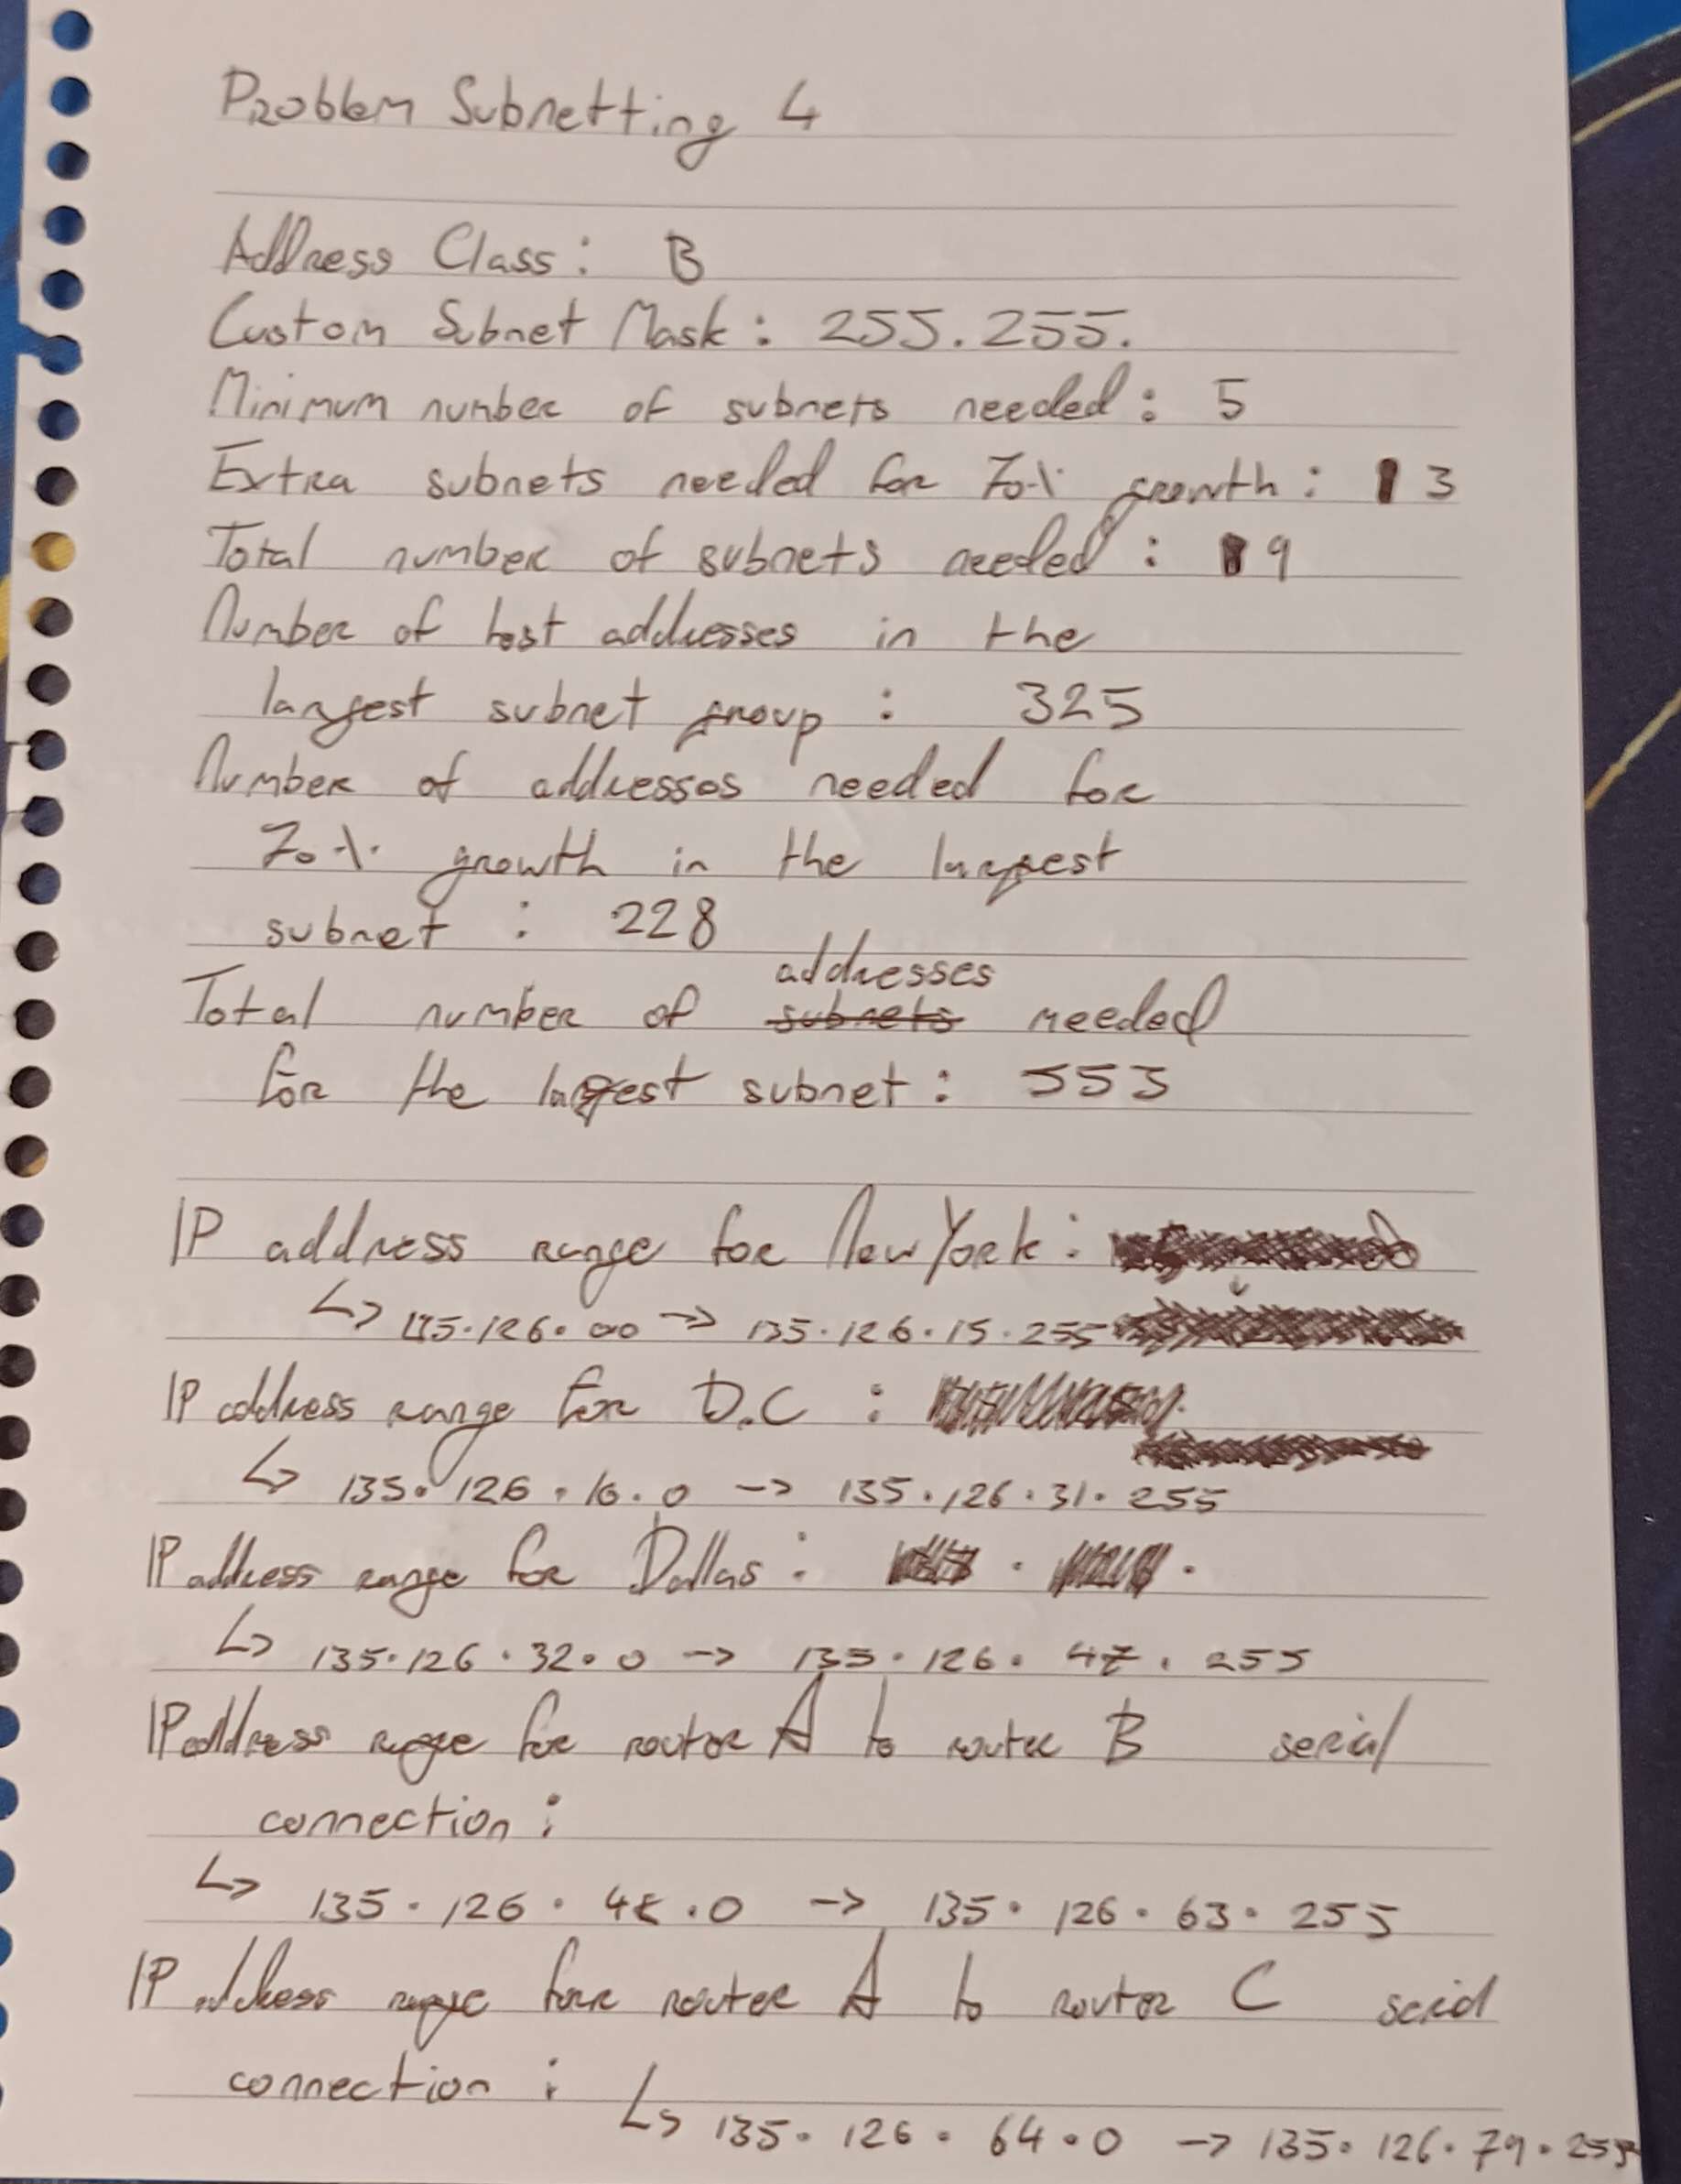 Problem Subnetting 4
Address Class : B
Custom Subnet Mask : 255.255.
Minimum number of subnets needed : 5
Extra subnets needed for 70% growth : 3
Total number of subnets needed : 9
Number of host addresses in the
largest subnet group : 325
Number of addresses needed for
70% growth in the largest
subnet : 228
addresses
Total number of subnets needed
for the largest subnet : 553
IP address range for New York :
↳ 135.126.00 → 135.126.15.255
IP address range for D.C :
↳ 135.126.16.0 → 135.126.31.255
IP address range for Dallas :
↳ 135.126.32.0 → 135.126.47.255
IP address range for router A to router B serial
connection :
↳ 135.126.48.0 → 135.126.63.255
IP address range for router A to router C serial
connection : ↳ 135.126.64.0 → 135.126.79.255